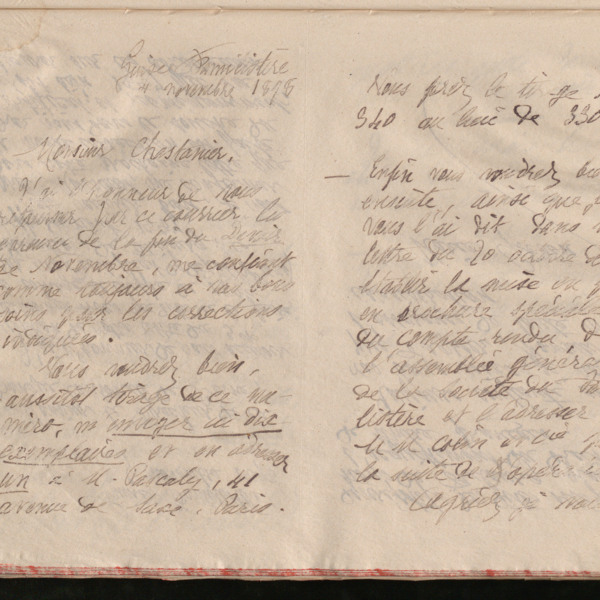 Guise Familistère
4 novembre 1898
Monsieur Chastanier,
J'ai l'honneur de vous
retourner par ce courrier la
épreuve de la fin du Devoir
de Novembre, me confiant
comme toujours à vos bons
soins pour les corrections
indiquées.
Vous voudrez bien,
aussitôt tirage de ce nu-
méro, m'envoyer ici dix
exemplaires et en adresser
un à M. Pascaly, 41
avenue de Saxe, Paris.
vous ferez le tirage
340 au lieu de 330
— Enfin vous voudrez
ensuite, ainsi que je
vous l'ai dit dans
lettre du 20 octobre
établir la mise
en brochure spéciale
du compte-rendu, de
l'assemblée générale
de la Société du Fami
listère et l'adresser
M M Colin et Cie
la suite de
Agréez je vous